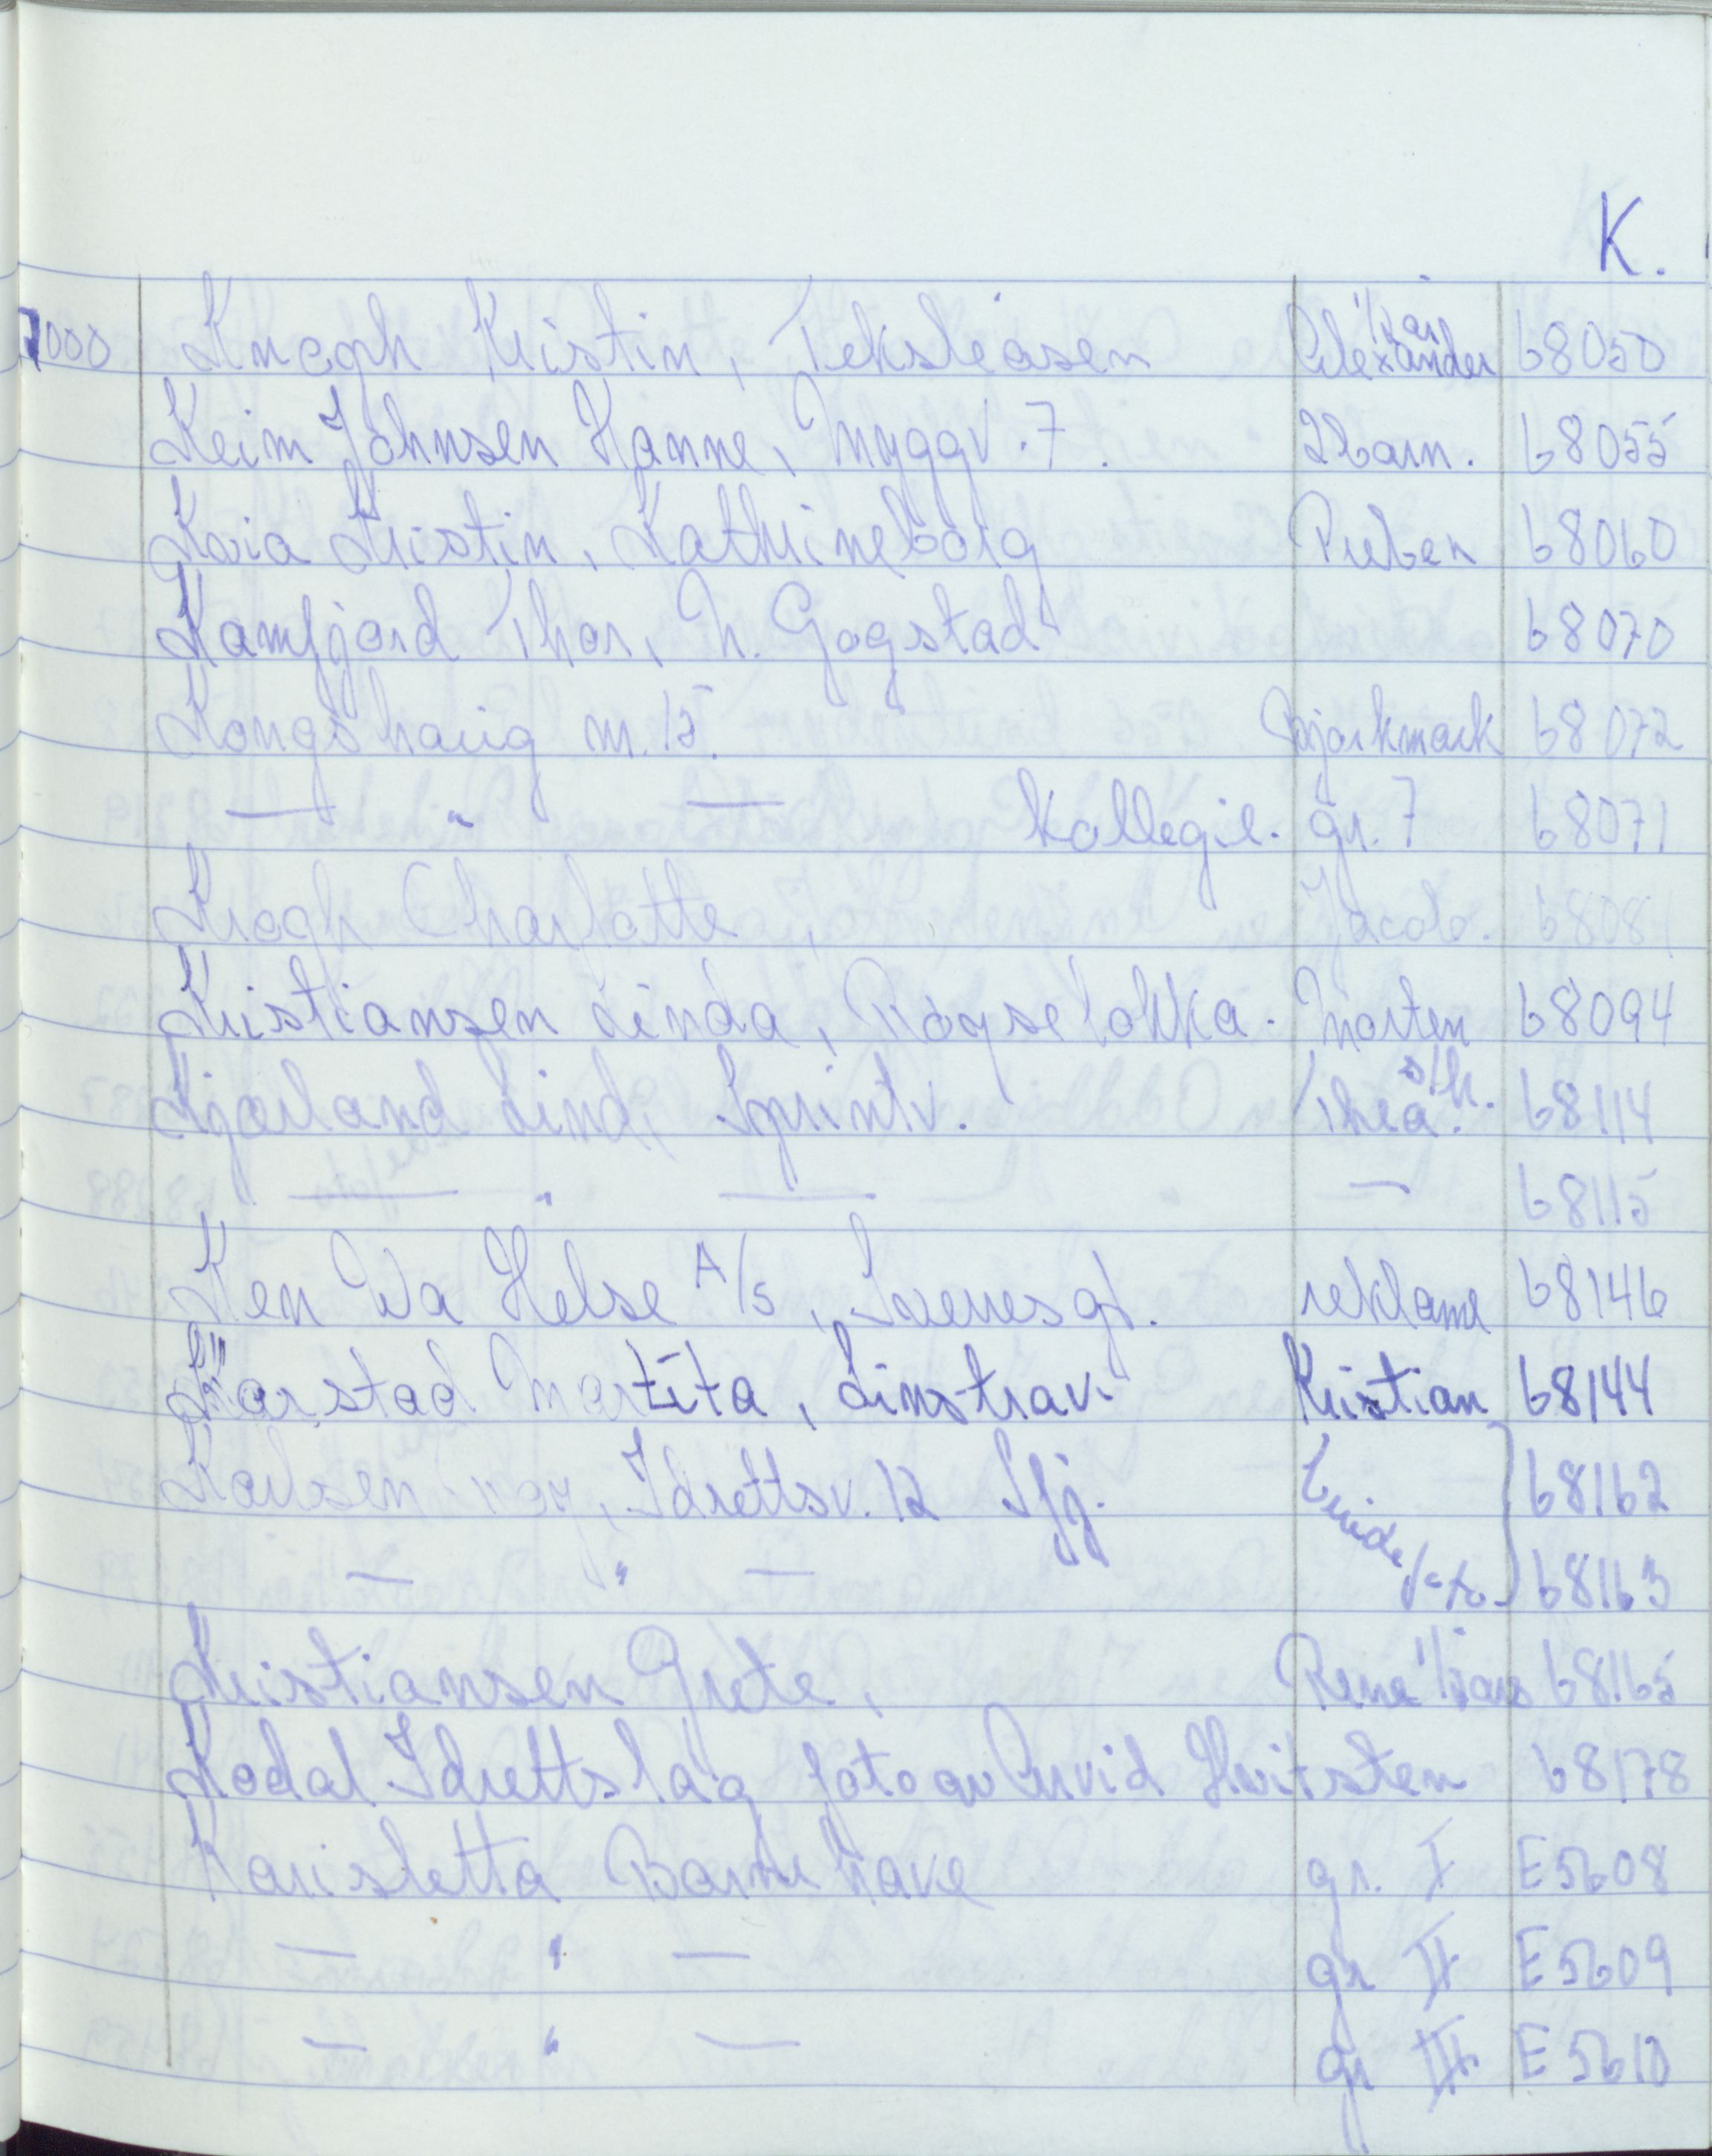 K.
7000 Knagh Kristin, Teksleåsen Alexander 1/2 år 68050
Keim Johnsen Hanne, Myggv. 7. 2 barn. 68055
Kvia Kristin, Kathrineborg Preben 68060
Kamfjord Thor, N. Gogstad 68070
Kongshaug m. 15. Bjørkmark 68072
— " — Kollegie. gr. 7 68071
Krogh Charlotte, Jacob. 68081
Kristiansen Linda, Røyseløkka. Morten 68094
Kjørland Lind, Sprintv. Thea. s/h. 68114
— " — — 68115
Ken Wa Helse A/S, Sverresgt. reklame 68146
Karstad Martita, Linstrav. Kristian 68144
Karlsen Roy, Idrettsv. 12 Sfj. Brude 68162
— " — fot. 68163
Kristiansen Grete, René 1/2 års 68165
Kodal Idrettslag foto av Arvid Hvitsten 68178
Karisletta Barnehave gr. I E5608
— " — gr II E5609
— " — gr III E5610